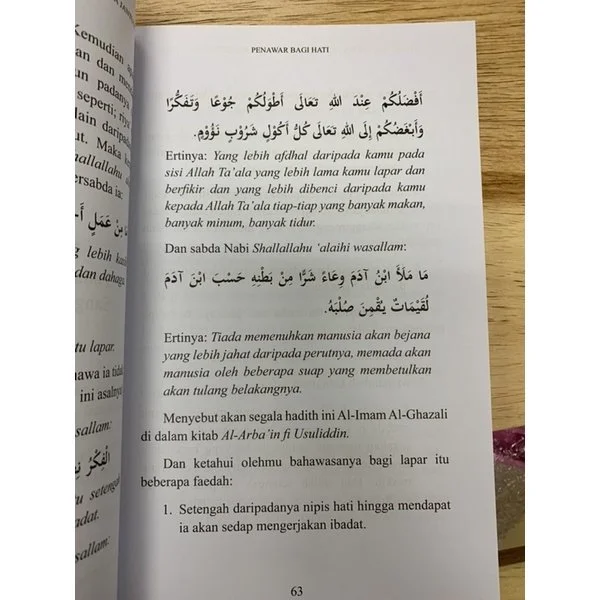 Kemudian
an dan men
un padanya
seperti; riy
lain daripad
ut. Maka
Shallallahu
bersabda ia:
مَا مِنْ عَمَلٍ
g lebih
dan dahaga.
tu lapar.
hawa ia tidak
ini asalnya
sallam:
الْفِكْرُ
itu setengah
badat.
sallam:
PENAWAR BAGI HATI
أَفْضَلُكُمْ عِنْدَ اللهِ تَعَالَى أَطْوَلُكُمْ جُوْعًا وَتَفَكُّرًا
وَأَبْغَضُكُمْ إِلَى اللهِ تَعَالَى كُلُّ أَكُوْلٍ شَرُوْبٍ نَؤُوْمٍ.
Ertinya: Yang lebih afdhal daripada kamu pada
sisi Allah Ta’ala yang lebih lama kamu lapar dan
berfikir dan yang lebih dibenci daripada kamu
kepada Allah Ta’ala tiap-tiap yang banyak makan,
banyak minum, banyak tidur.
Dan sabda Nabi Shallallahu ‘alaihi wasallam:
مَا مَلَأَ ابْنُ آدَمَ وِعَاءً شَرًّا مِنْ بَطْنِهِ حَسْبَ ابْنَ آدَمَ
لُقَيْمَاتٌ يُقْمِنَ صُلْبَهُ.
Ertinya: Tiada memenuhkan manusia akan bejana
yang lebih jahat daripada perutnya, memada akan
manusia oleh beberapa suap yang membetulkan
akan tulang belakangnya.
Menyebut akan segala hadith ini Al-Imam Al-Ghazali
di dalam kitab Al-Arba’in fi Usuliddin.
Dan ketahui olehmu bahawasanya bagi lapar itu
beberapa faedah:
1. Setengah daripadanya nipis hati hingga mendapat
ia akan sedap mengerjakan ibadat.
63